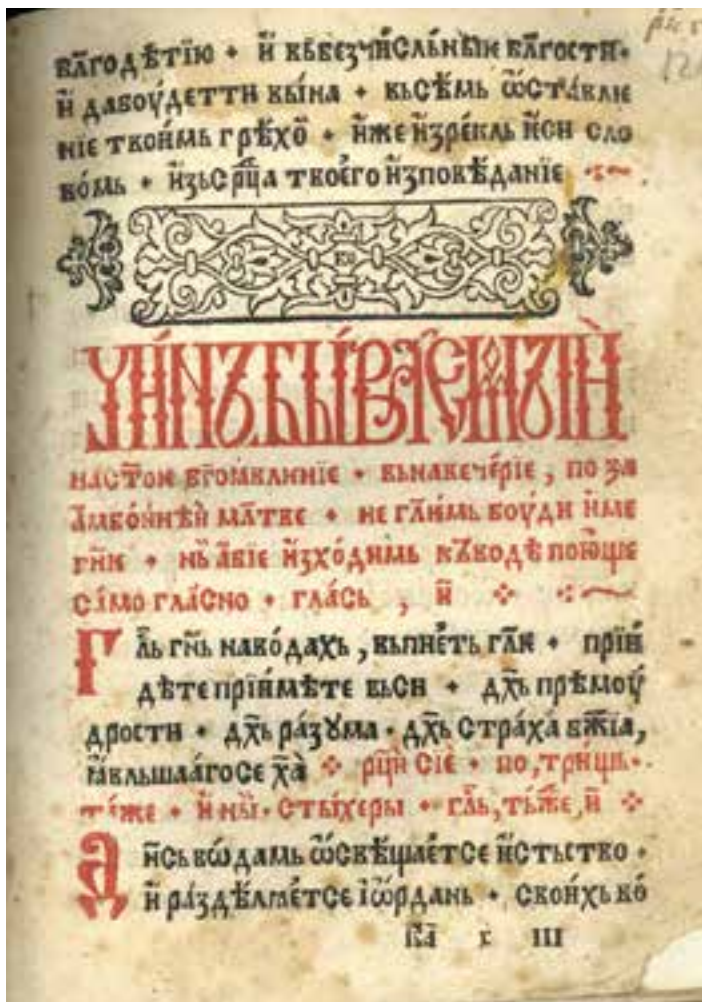 бл҃годѣтїю • и҆ вь безчи́сльныѥ бл҃гости •
и҆ да боу́деть ти вына • вьсѣмь ѡ҆ста́влѥ
нїе твои́мь грѣхо • и҆же и҆зре́кль и҆си сло
во́мь • и҆зь ср҃ца твоѥго и҆зповѣданїе
чи́нь быва́ѥмыи
на ст҃ою бг҃оꙗвлѥнїе • вь навече́рїе, по за
а҆мво́ннѣй мл҃тве •
самогла́сно • гла́сь, и҃
Гл҃ь гн҃ь на во́дахь, вьпїеть гл҃ѥ • прїи
дѣте прїи́мѣте вьси • дх҃ь прѣмоу́
дрости • дх҃ь ра́зꙋма • дх҃ь стра́ха бж҃їа,
ꙗ҆вльшааго се х҃а • рц҃и сїе • по, три́щь
та́же • и҆ ны҃ • стыхеры • гл҃ь, ть́же, и҃
Д н҃сь во́дамь ѡ҆свѣща́ѥт се ѥ҆стьство •
и҆ ра́здѣлꙗѥт се їѡ҆рдань • своихь во́